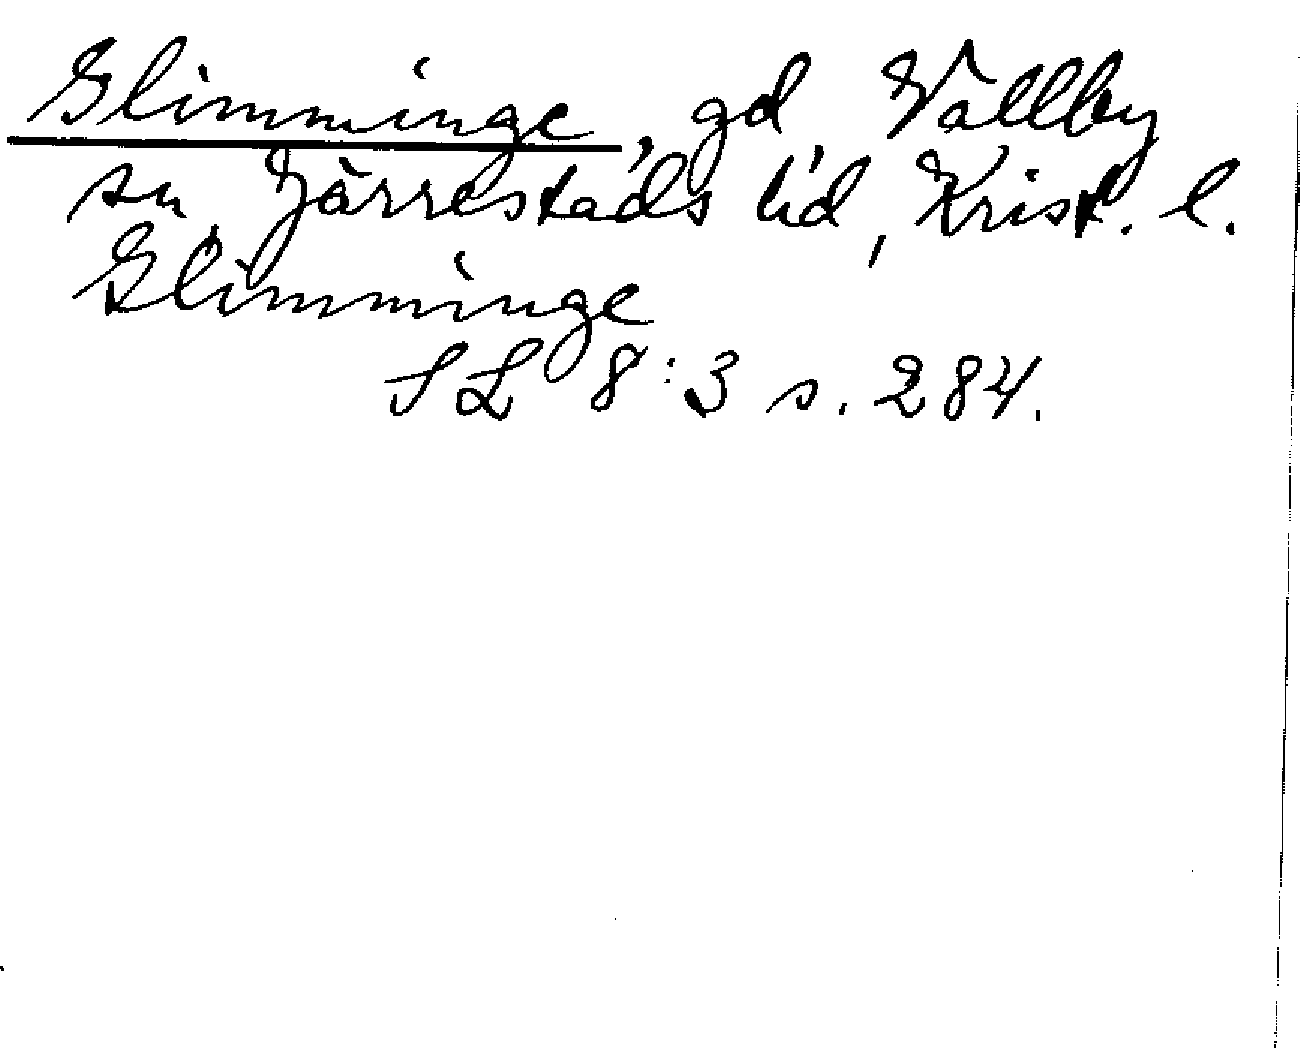 Glimminge, gd, Vallby
sn, Järrestads hd, Krist. l.
Glimminge
SL 8:3 s. 284.